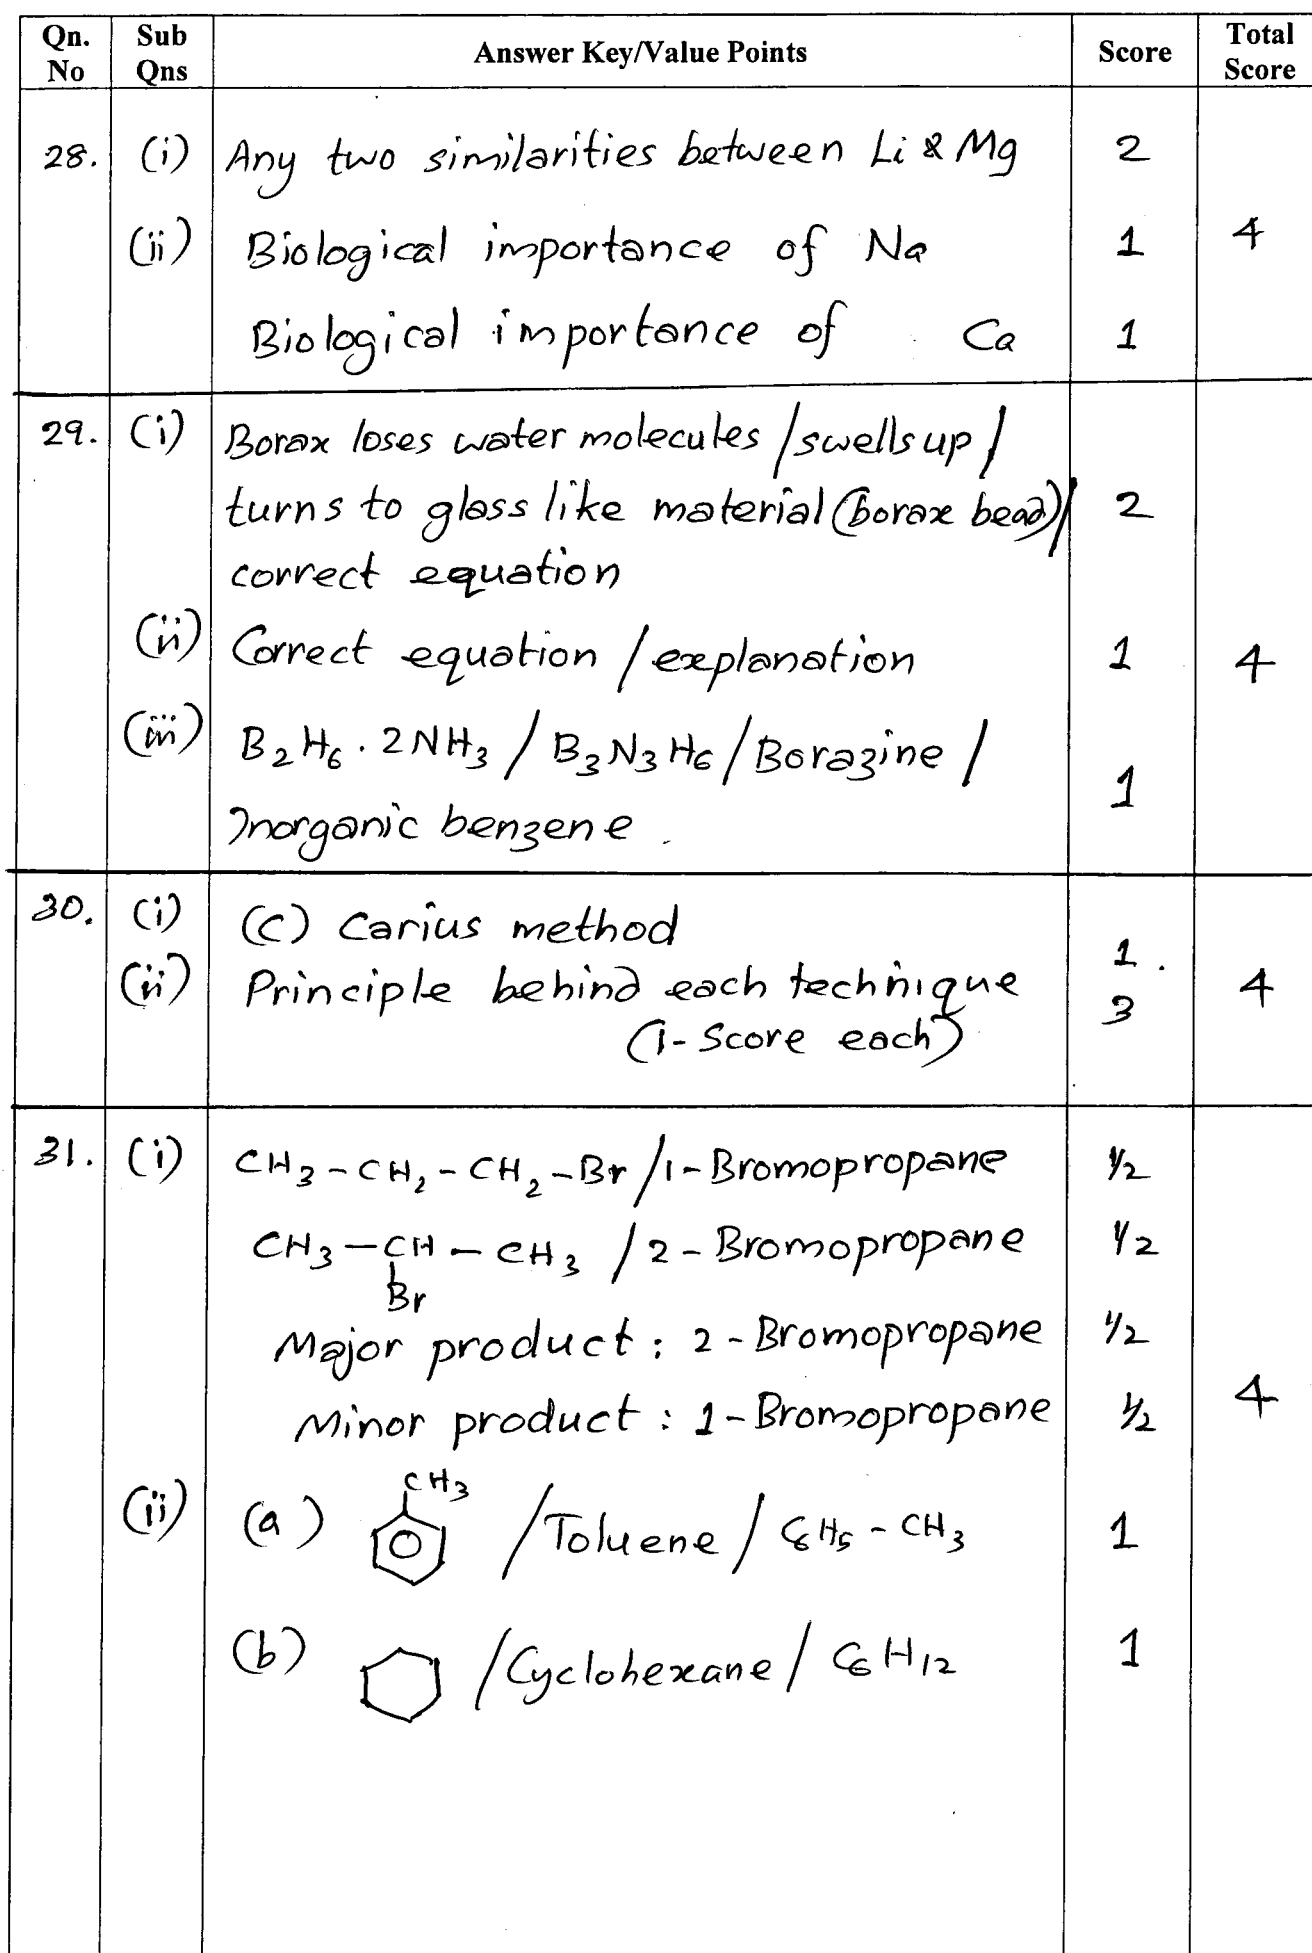 Qn. No Sub Qns Answer Key/Value Points Score Total Score
28. (i) Any two similarities between Li & Mg 2
(ii) Biological importance of Na 1 4
Biological importance of Ca 1
29. (i) Borax loses water molecules / swells up /
turns to glass like material (borax bead) / 2
correct equation
(ii) Correct equation / explanation 1 4
(iii) B₂H₆ . 2NH₃ / B₃N₃H₆ / Borazine /
Inorganic benzene . 1
30. (i) (c) Carius method 1 .
(ii) Principle behind each technique 3 4
(1 - Score each)
31. (i) CH₃ - CH₂ - CH₂ - Br / 1 - Bromopropane ½
CH₃ - CH - CH₃ / 2 - Bromopropane ½
Br
Major product : 2 - Bromopropane ½
Minor product : 1 - Bromopropane ½ 4
CH₃
(ii) (a) / Toluene / C₆H₅ - CH₃ 1
(b) / Cyclohexane / C₆H₁₂ 1